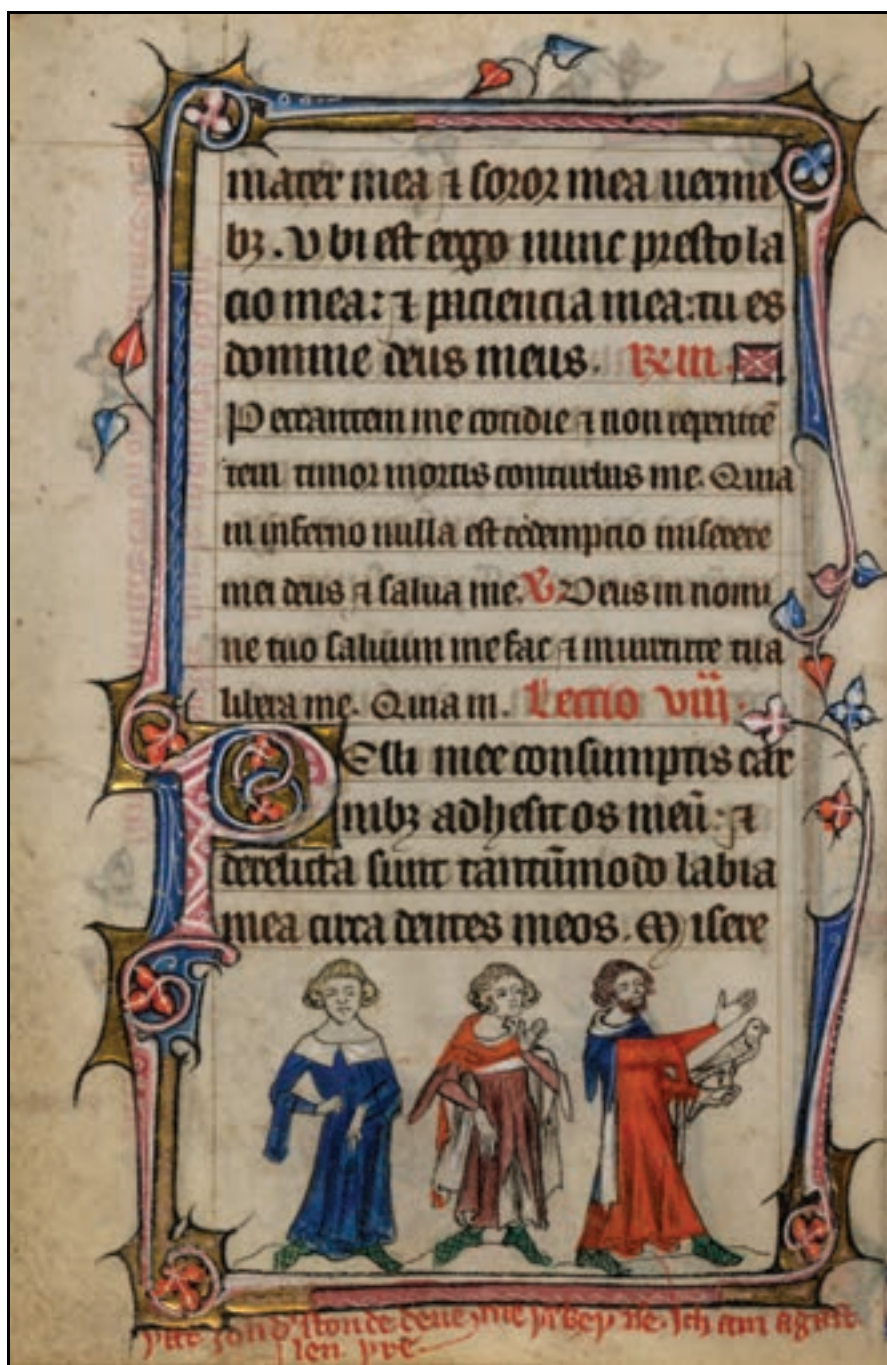 mater mea ⁊ soror mea uermi
bꝫ. Vbi est ergo nunc prestola
cio mea: ⁊ paciencia mea: tu es
domine deus meus.
Peccantem me cotidie ⁊ non repenitē
tem timor mortis conturbus me. Quia
in inferno nulla est redempcio miserere
mei deus ⁊ salua me. V Deus in nomi
ne tuo saluum me fac ⁊ in uirtute tua
libera me. Quia in. Lectio viij.
Pelli mee consumptis car
nibꝫ adhesit os meū: ⁊
derelicta sunt tantūmodo labia
mea circa dentes meos. Misere
ich am agast